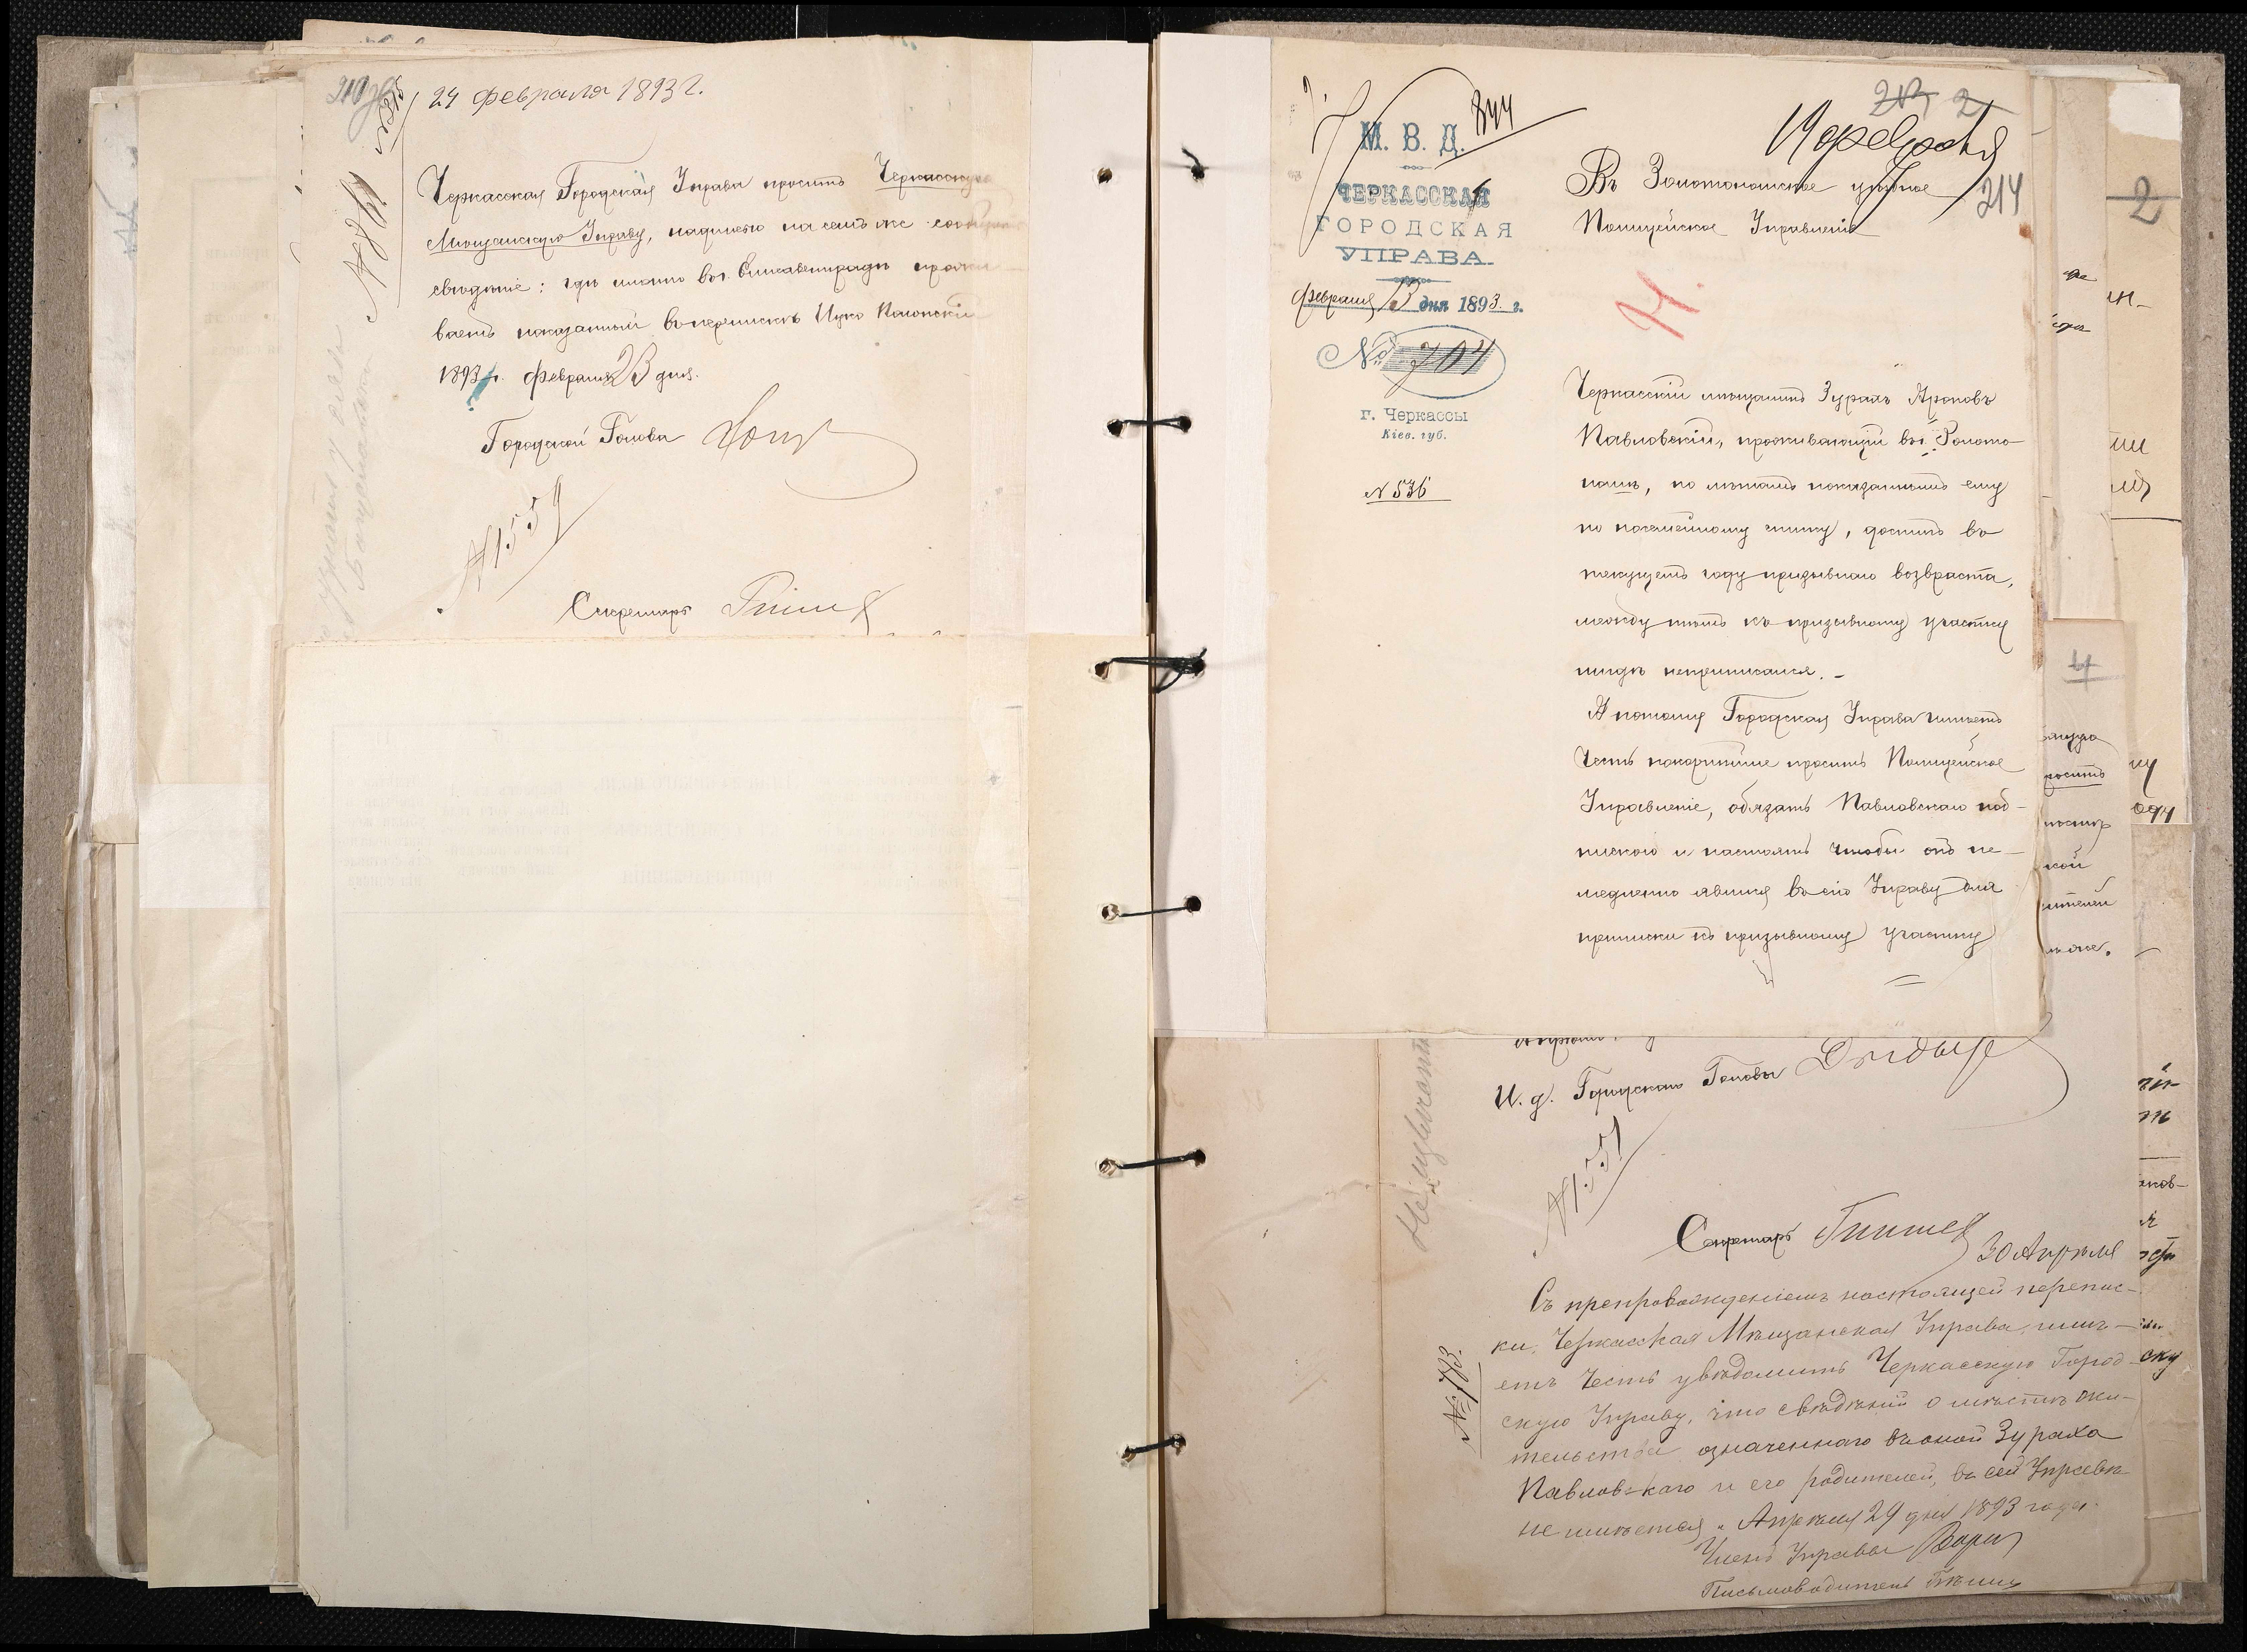 24 февраля 1893 г.
Черкасская Городская Управа проситъ Черкасскую
Мѣщанскую Управу, надписью на семъ же сообщить
свѣдѣніе: гдѣ именно въ г. Елисаветградѣ прожи-
ваетъ показанный въ перепискѣ Ицко
1893 г. февраля 23 дня.
Городской Голова
№ 1559
Секретарь
214
М. В. Д.
844
ЧЕРКАССКАЯ
ГОРОДСКАЯ
УПРАВА.
февраля 13 дня 1893 г.
№ 704
г. Черкассы
Кіев. губ.
№ 536
2
Въ Золотоношское уѣздное
Полицейское Управленіе
Черкасскій мѣщанинъ Зурахъ Ароновъ
Павловскій, проживающій въ г. Золото-
ношѣ, по лѣтамъ показаннымъ ему
по посемейному списку, достигъ въ
текущемъ году призывного возвраста,
между тѣмъ къ призывному участку
нигдѣ неприписался. -
А потому Городская Управа имѣетъ
честь покорнѣйше просить Полицейское
Управленіе, обязать Павловскаго под-
пискою и настоять чтобы онъ не-
медленно явился въ сію Управу для
приписки къ призывному участку
2
4
И. д. Городского Головы
№ 1551
Секретарь
30 Апрѣля
Съ препровожденіемъ настоящей перепис-
ки, Черкасская Мѣщанская Управа, имѣ-
етъ честь увѣдомить Черкасскую Город-
скую Управу, что свѣдѣній о мѣстѣ жи-
тельства означеннаго въ оной Зураха
Павловскаго и его родителей, въ сей Управѣ
не имѣется. Апрѣля 29 дня 1893 года.
Членъ Управы
Письмоводитель
№ 773.